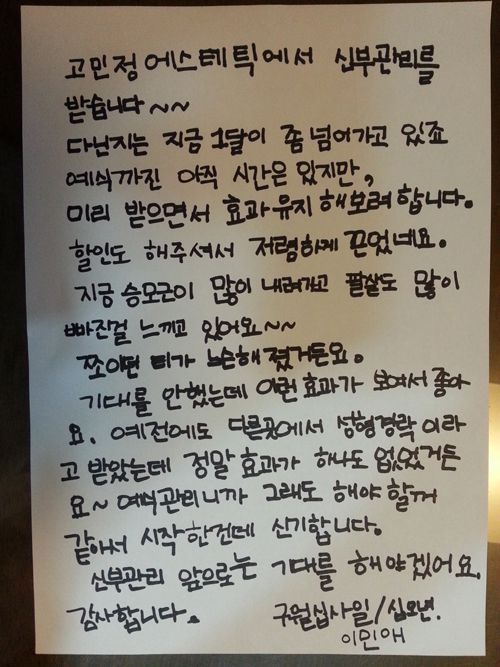 고민정에스테틱에서 신부관리를
받습니다~~
다닌지는 지금 1달이 좀 넘어가고 있죠
예식까진 아직 시간은 있지만,
미리 받으면서 효과유지 해보려 합니다.
할인도 해주셔서 저렴하게 끈었네요.
지금 승모근이 많이 내려가고 팔살도 많이
빠진걸 느끼고 있어요~~
쪼이던 티가 느슨해 졌거든요.
기대를 안했는데 이런 효과가 보여서 좋아
요. 예전에도 다른곳에서 성형경락 이라
고 받았는데 정말 효과가 하나도 없었거든
요~ 예식관리니까 그래도 해야 할꺼
같아서 시작한건데 신기합니다.
신부관리 앞으로는 기대를 해야겠어요.
감사합니다. 구월십사일/십오년.
이민애